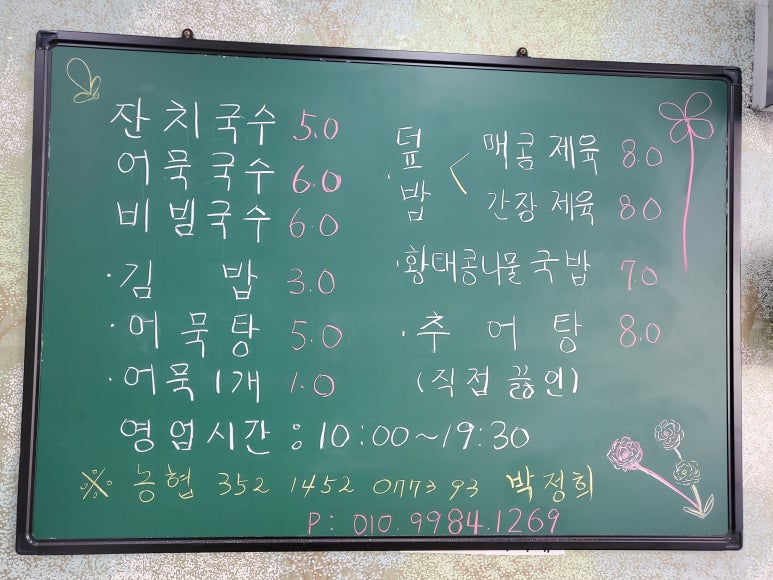 잔치국수 5.0
어묵국수 6.0
비빔국수 6.0
·김 밥 3.0
·어묵탕 5.0
·어묵1개 1.0
·덮밥 < 매콤제육 8.0
간장제육 8.0
·황태콩나물국밥 7.0
·추어탕 8.0
(직접 끓인)
영업시간 : 10:00~19:30
※ 농협 352 1452 0773 93 박정희
P: 010.9984.1269